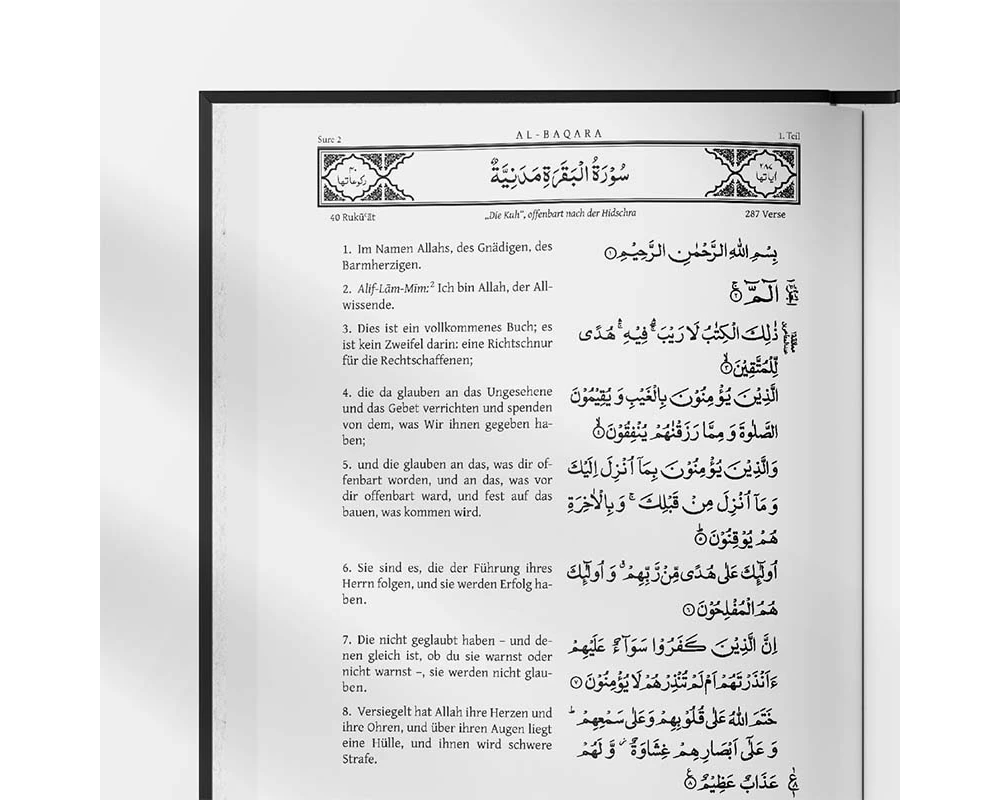 Sure 2
AL-BAQARA
1. Teil
٤٠
رکوعاتها
سُوْرَةُ الْبَقَرَةِ مَدَنِيَّةٌ
٢٨٧
اياتها
40 Rukūʿāt
„Die Kuh“, offenbart nach der Hidschra
287 Verse
1. Im Namen Allahs, des Gnädigen, des
Barmherzigen.
2. Alif-Lām-Mīm:² Ich bin Allah, der All-
wissende.
3. Dies ist ein vollkommenes Buch; es
ist kein Zweifel darin: eine Richtschnur
für die Rechtschaffenen;
4. die da glauben an das Ungesehene
und das Gebet verrichten und spenden
von dem, was Wir ihnen gegeben ha-
ben;
5. und die glauben an das, was dir of-
fenbart worden, und an das, was vor
dir offenbart ward, und fest auf das
bauen, was kommen wird.
6. Sie sind es, die der Führung ihres
Herrn folgen, und sie werden Erfolg ha-
ben.
7. Die nicht geglaubt haben – und de-
nen gleich ist, ob du sie warnst oder
nicht warnst –, sie werden nicht glau-
ben.
8. Versiegelt hat Allah ihre Herzen und
ihre Ohren, und über ihren Augen liegt
eine Hülle, und ihnen wird schwere
Strafe.
بِسْمِ اللّٰهِ الرَّحْمٰنِ الرَّحِيْمِ ۝١
الٓمّٓ ۚ۝٢
ذٰلِكَ الْكِتٰبُ لَا رَيْبَ ۛۖ فِيْهِ ۛۚ هُدًى
لِّلْمُتَّقِيْنَ ۙ۝٣
الَّذِيْنَ يُؤْمِنُوْنَ بِالْغَيْبِ وَ يُقِيْمُوْنَ
الصَّلٰوةَ وَ مِمَّا رَزَقْنٰهُمْ يُنْفِقُوْنَ ۙ۝٤
وَالَّذِيْنَ يُؤْمِنُوْنَ بِمَاۤ اُنْزِلَ اِلَيْكَ
وَ مَاۤ اُنْزِلَ مِنْ قَبْلِكَ ۚ وَ بِالْاٰخِرَةِ
هُمْ يُوْقِنُوْنَ ؕ۝٥
اُولٰٓئِكَ عَلٰى هُدًى مِّنْ رَّبِّهِمْ ٭ وَ اُولٰٓئِكَ
هُمُ الْمُفْلِحُوْنَ ۝٦
اِنَّ الَّذِيْنَ كَفَرُوْا سَوَآءٌ عَلَيْهِمْ
ءَاَنْذَرْتَهُمْ اَمْ لَمْ تُنْذِرْهُمْ لَا يُؤْمِنُوْنَ ۝٧
خَتَمَ اللّٰهُ عَلٰى قُلُوْبِهِمْ وَعَلٰى سَمْعِهِمْ ؕ
وَ عَلٰۤى اَبْصَارِهِمْ غِشَاوَةٌ ۫ وَّ لَهُمْ
عَذَابٌ عَظِيْمٌ ۝٨